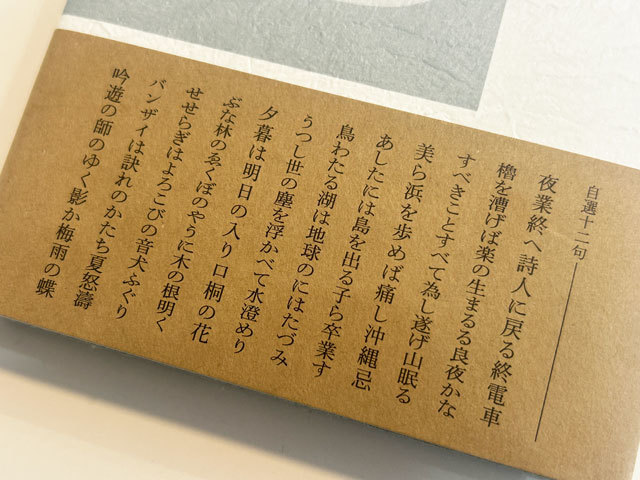 自選十二句
夜業終へ詩人に戻る終電車
櫓を漕げば楽の生まるる良夜かな
すべきことすべて為し遂げ山眠る
美ら浜を歩めば痛し沖縄忌
あしたには島を出る子ら卒業す
鳥わたる湖は地球のにはたづみ
うつし世の塵を浮かべて水澄めり
夕暮は明日の入り口桐の花
ぶな林のゑくぼのやうに木の根明く
せせらぎはよろこびの音犬ふぐり
バンザイは訣れのかたち夏怒濤
吟遊の師のゆく影か梅雨の蝶